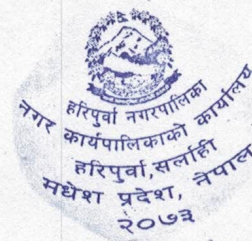 हरिपुर्वा नगरपालिका
नगर कार्यपालिकाको कार्यालय
हरिपुर्वा,सर्लाही
मधेश प्रदेश, नेपाल
२०७३